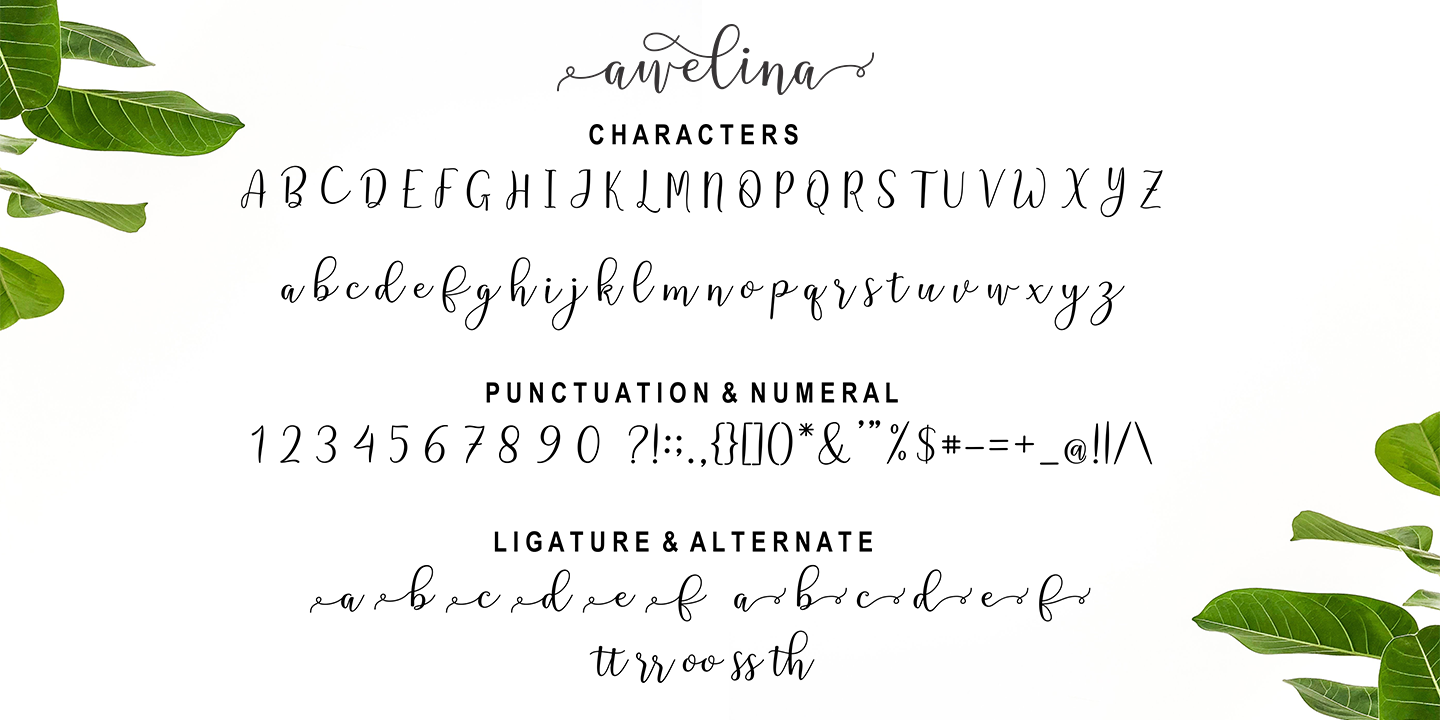 awelina
CHARACTERS
A B C D E F G H I J K L M N O P Q R S T U V W X Y Z
a b c d e f g h i j k l m n o p q r s t u v w x y z
PUNCTUATION & NUMERAL
1 2 3 4 5 6 7 8 9 0 ?!:;.,{}[]()*&'"%$#-=+_@!|/\
LIGATURE & ALTERNATE
a b c d e f a b c d e f
tt rr oo ss th